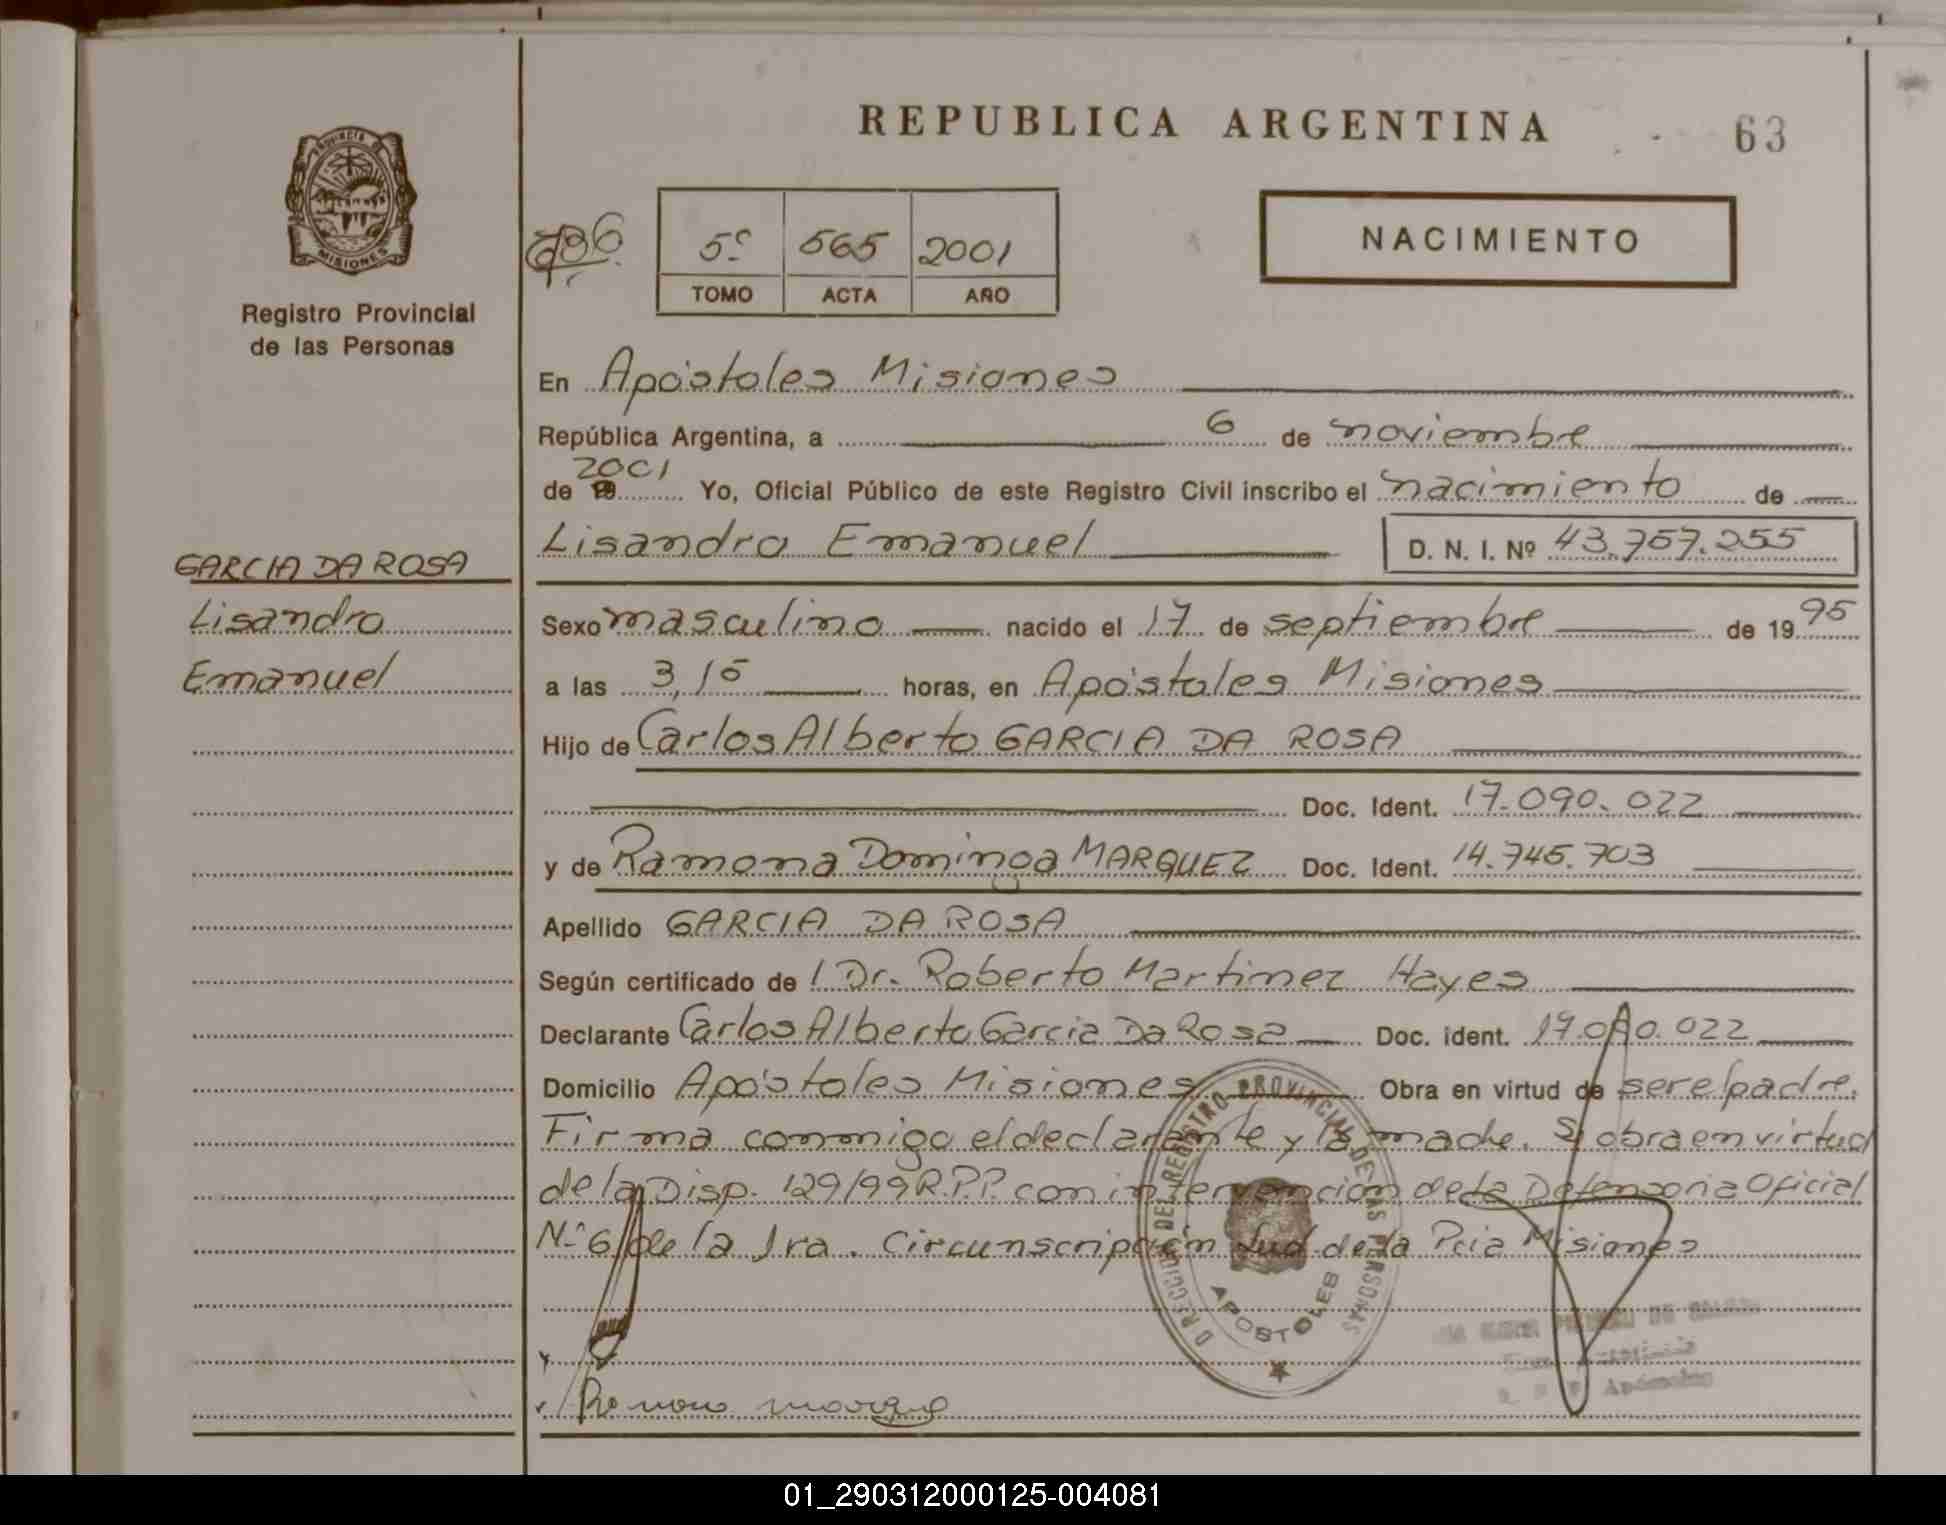 REPUBLICA ARGENTINA
63
PROVINCIA DE
MISIONES
Registro Provincial
de las Personas
786
5º 565 2001
TOMO ACTA AÑO
NACIMIENTO
En Apóstoles Misiones
República Argentina, a 6 de noviembre
de 19 2001 Yo, Oficial Público de este Registro Civil inscribo el nacimiento de
Lisandro Emanuel D. N. I. Nº 43.757.255
GARCIA DA ROSA
Lisandro
Emanuel
Sexo masculino nacido el 17 de septiembre de 19 95
a las 3,15 horas, en Apóstoles Misiones
Hijo de Carlos Alberto GARCIA DA ROSA
Doc. Ident. 17.090.022
y de Ramona Dominga MARQUEZ Doc. Ident. 14.745.703
Apellido GARCIA DA ROSA
Según certificado de l Dr. Roberto Martinez Hayes
Declarante Carlos Alberto Garcia Da Rosa Doc. ident. 17.090.022
Domicilio Apóstoles Misiones Obra en virtud de ser el padre.
Firma conmigo el declarante y la madre. Se obra en virtud
de la Disp. 129/99 R.P.P. con intervencion de la Defensoria Oficial
Nº 6 de la 1ra. Circunscripción Jud de la Pcia Misiones
DIRECCION DEL REGISTRO PROVINCIAL DE LAS PERSONAS
APOSTOLES
Apóstoles
01_290312000125-004081